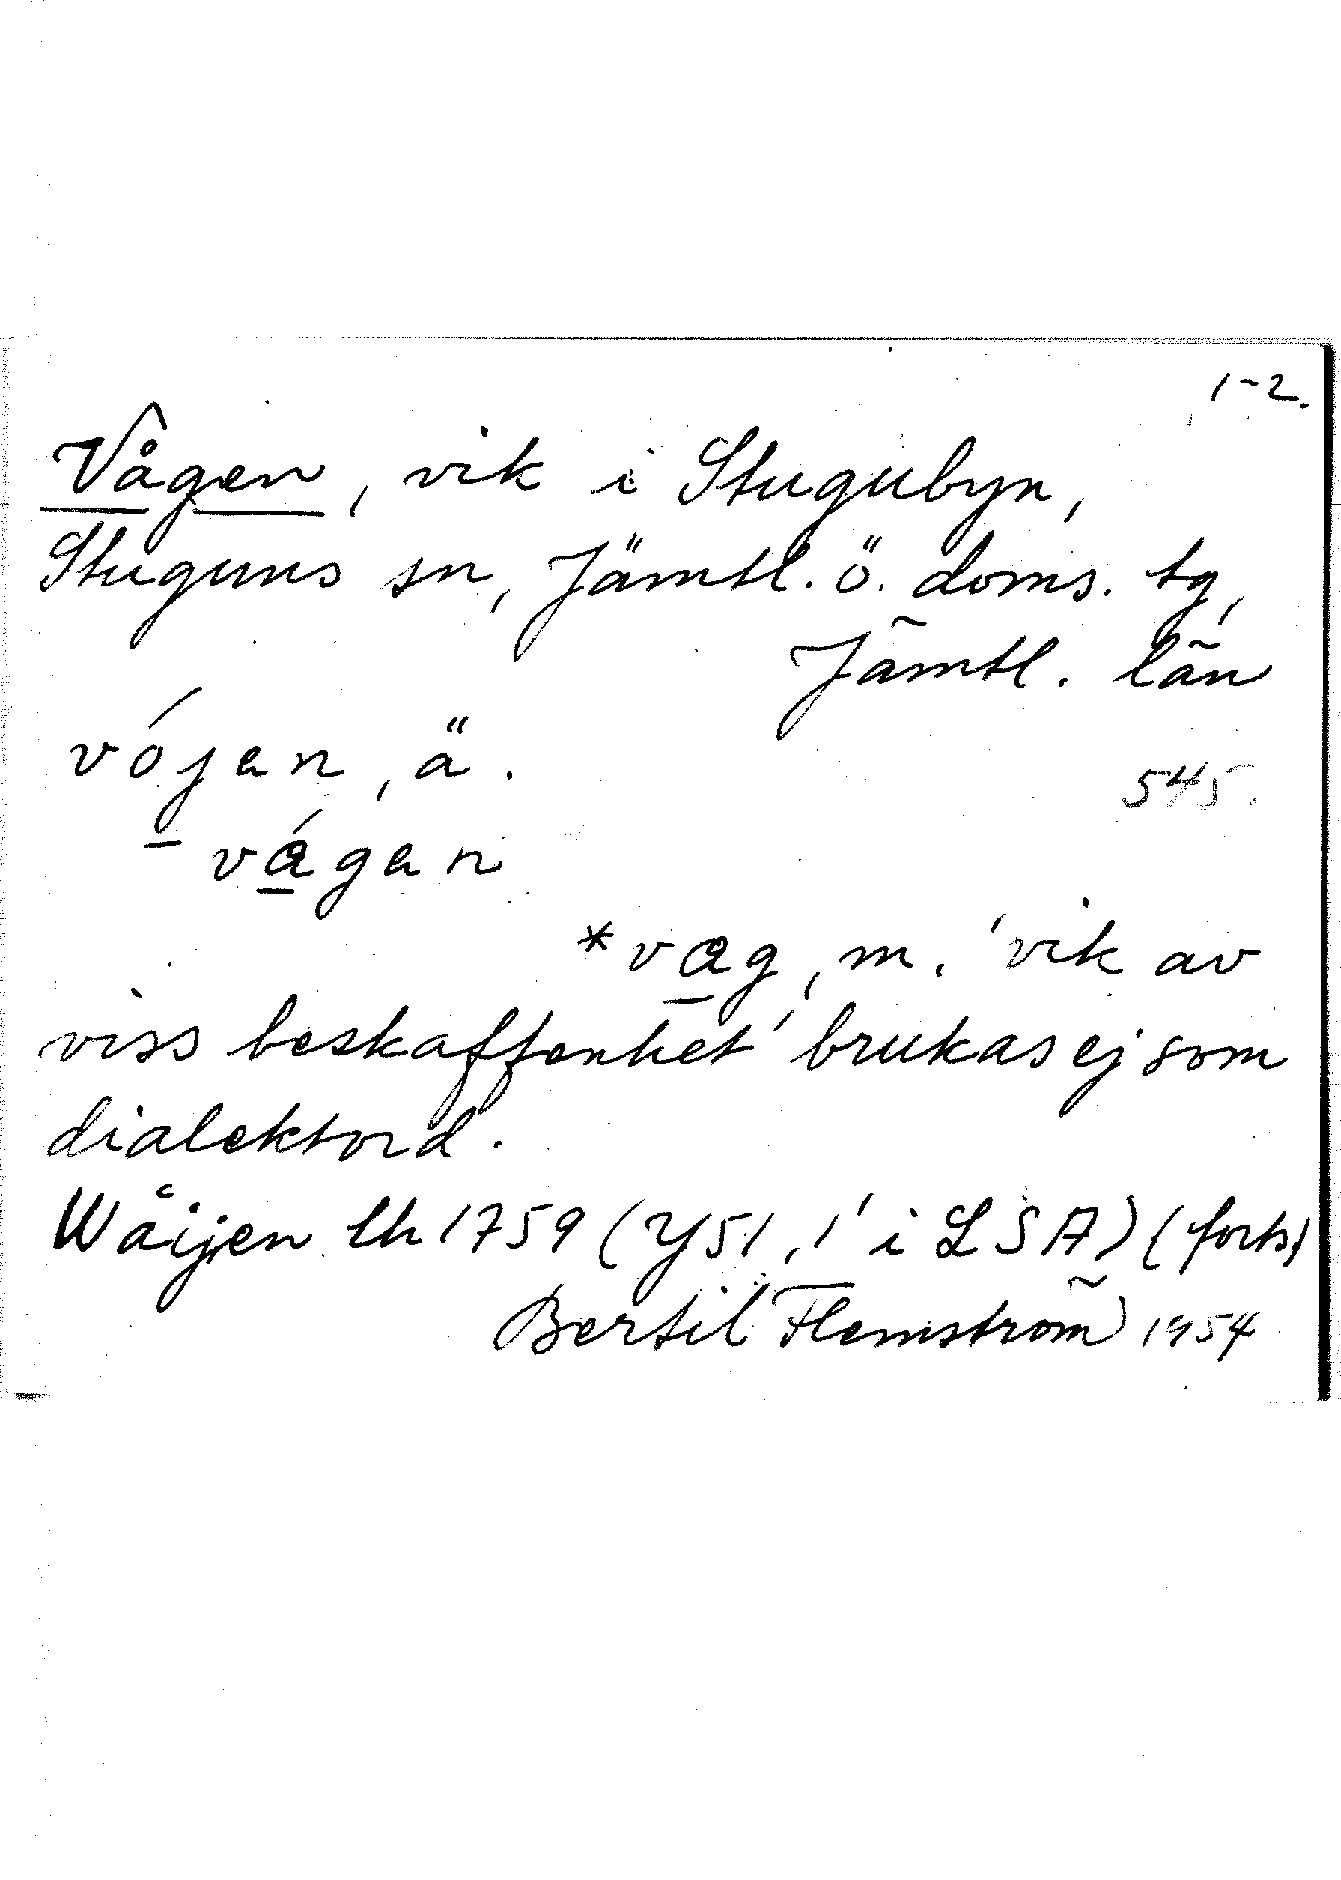 1-2.
Vågen, vik i Stugubyn,
Stuguns sn, Jämtl. ö. doms. tg,
Jämtl. län
vójen, ä.
545.
vágen
*vag, m. 'vik av
viss beskaffenhet' brukas ej som
dialektord.
Wåijen lh 1759 (Y51, 1' i LSA) (forts)
Bertil Flemström 1954